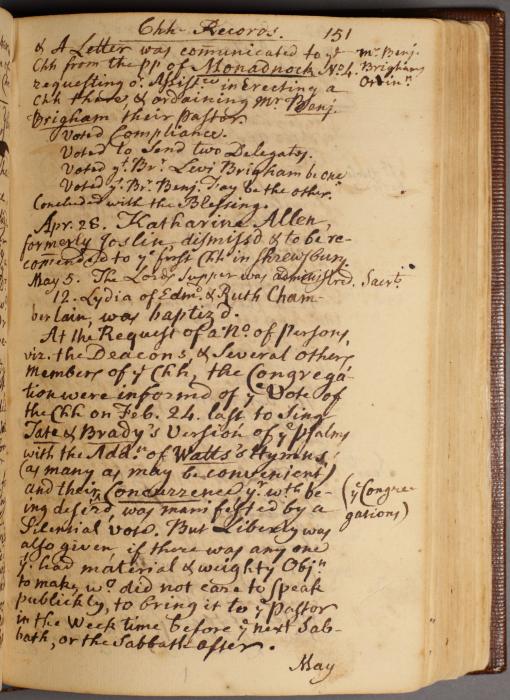 Chh Records. 151
& A Letter was communicated to ye
Chh from the pp of Monadnock No. 4.
requesting or. Assistce in Erecting a
Chh there, & ordaining Mr Benj.
Brigham their Pastor.
Mr Benj.
Brigham
Ordinn.
Voted Compliance.
Voted to Send two Delegates.
Voted yt. Br. Levi Brigham be one
Voted yt. Br. Benj. Fay be the other.
Concluded with the Blessing.
Apr. 28. Katharine Allen,
formerly Joslin, dismissd & to be re-
comended to ye first Chh in Shrewsbury
May 5. The Lords Supper was administred. Sacrt.
12. Lydia of Edmd. & Ruth Cham-
berlain, was baptiz'd.
At the Request of a No. of Persons,
viz. the Deacons, & Several others
members of ye Chh, the Congrega-
tion were informd of ye Vote of
the Chh on Feb. 24. last to Sing
Tate & Brady's Version of ye Psalms
with the Addn. of Watts's Hymns
(as many as may be convenient)
and their Concurrence yr. wth. be-
ing desir'd, was manifested by a
(ye Congre-
gations)
Silential vote. But Liberty was
also given, if there was any one
yt. had material & weighty Objn.
to make, wo. did not care to speak
publickly, to bring it to ye Pastor
in the Week time before ye next Sab-
bath, or the Sabbath after.
May